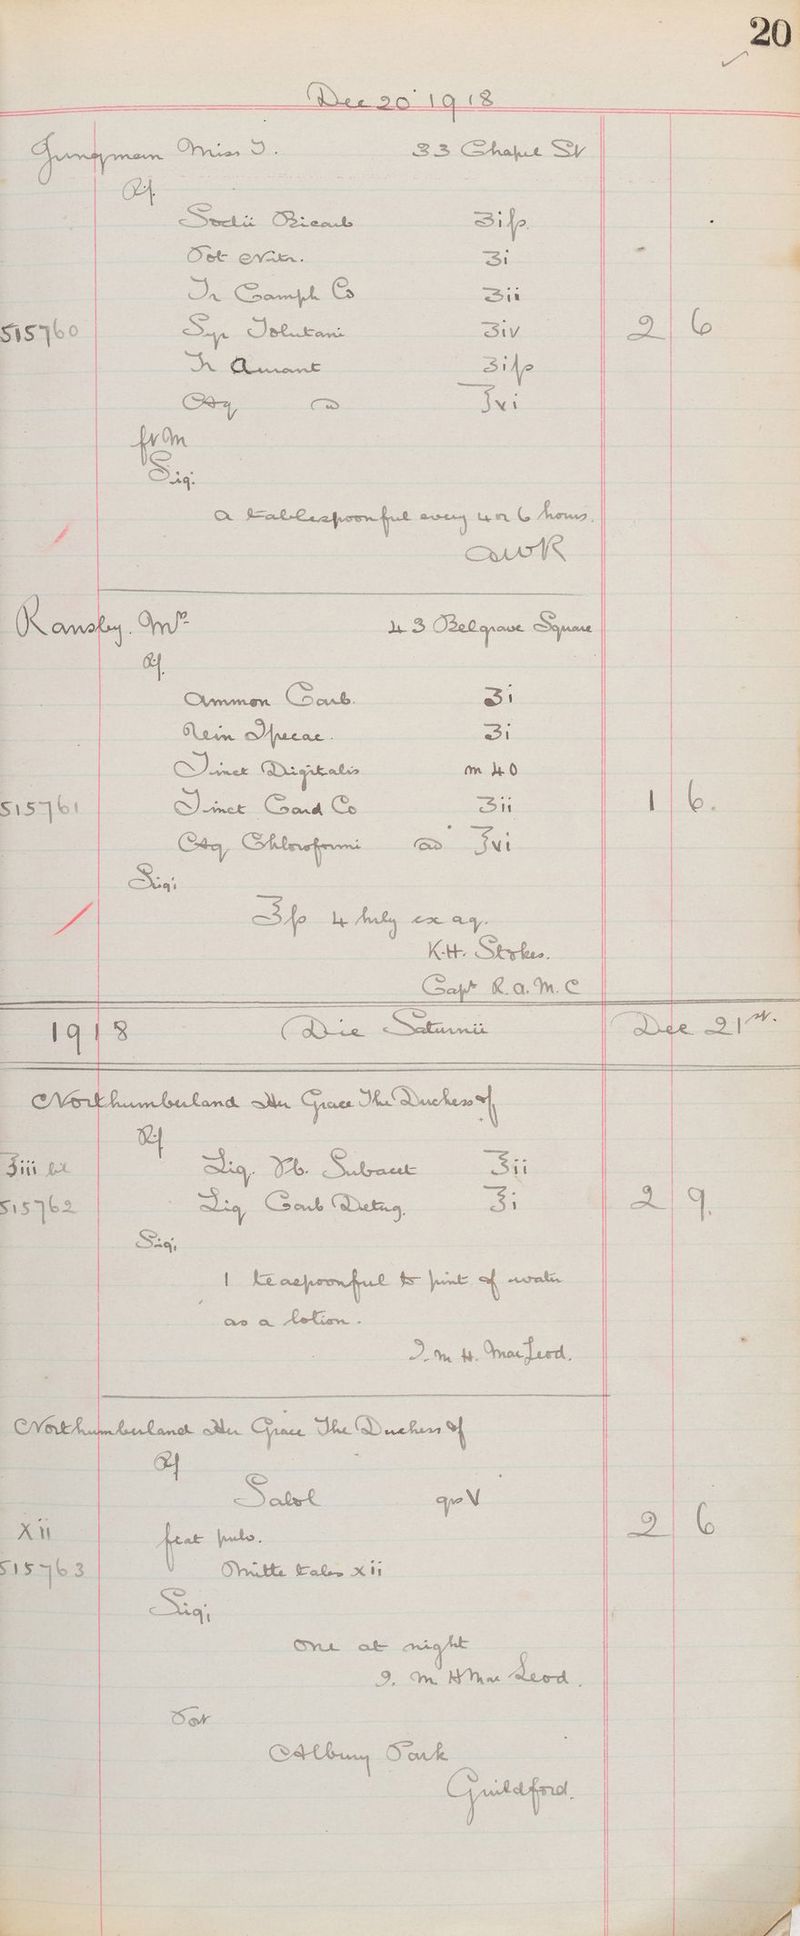 20
Dec 20 1918
Jungman Miss T. 33 Chapel St
Rx.
Sodii Bicarb ʒiſs
Pot Nitr. ʒi
Tr Camph Co ʒii
515760 Syr Tolutani ʒiv 2 6
Tr Aurant ʒiſs
Aq ad ℥vi
ft m
Sig:
a tablespoonful every 4 or 6 hours.
AWR
Ransby. Mrs 43 Belgrave Square
Rx.
Ammon Carb. ʒi
Vin Ipecac. ʒi
Tinct Digitalis m 40
515761 Tinct Card Co ʒii 1 6.
Aq Chloroformi ad ℥vi
Sig:
℥ſs 4 hrly ex aq.
K.H. Stokes.
Capt R.A.M.C
1918 Die Saturnii Dec 21st.
Northumberland Her Grace The Duchess of
Rx
℥iii Liq. Pb. Subacet ℥ii
515762 Liq Carb Deterg. ℥i 2 9.
Sig;
1 teaspoonful to pint of water
as a lotion.
J. M H. MacLeod.
Northumberland Her Grace The Duchess of
Rx
Salol grs V
Xii fiat pulv. 2 6
515763 Mitte tales xii
Sig;
one at night
J. M H MacLeod.
Post
Albury Park
Guildford.